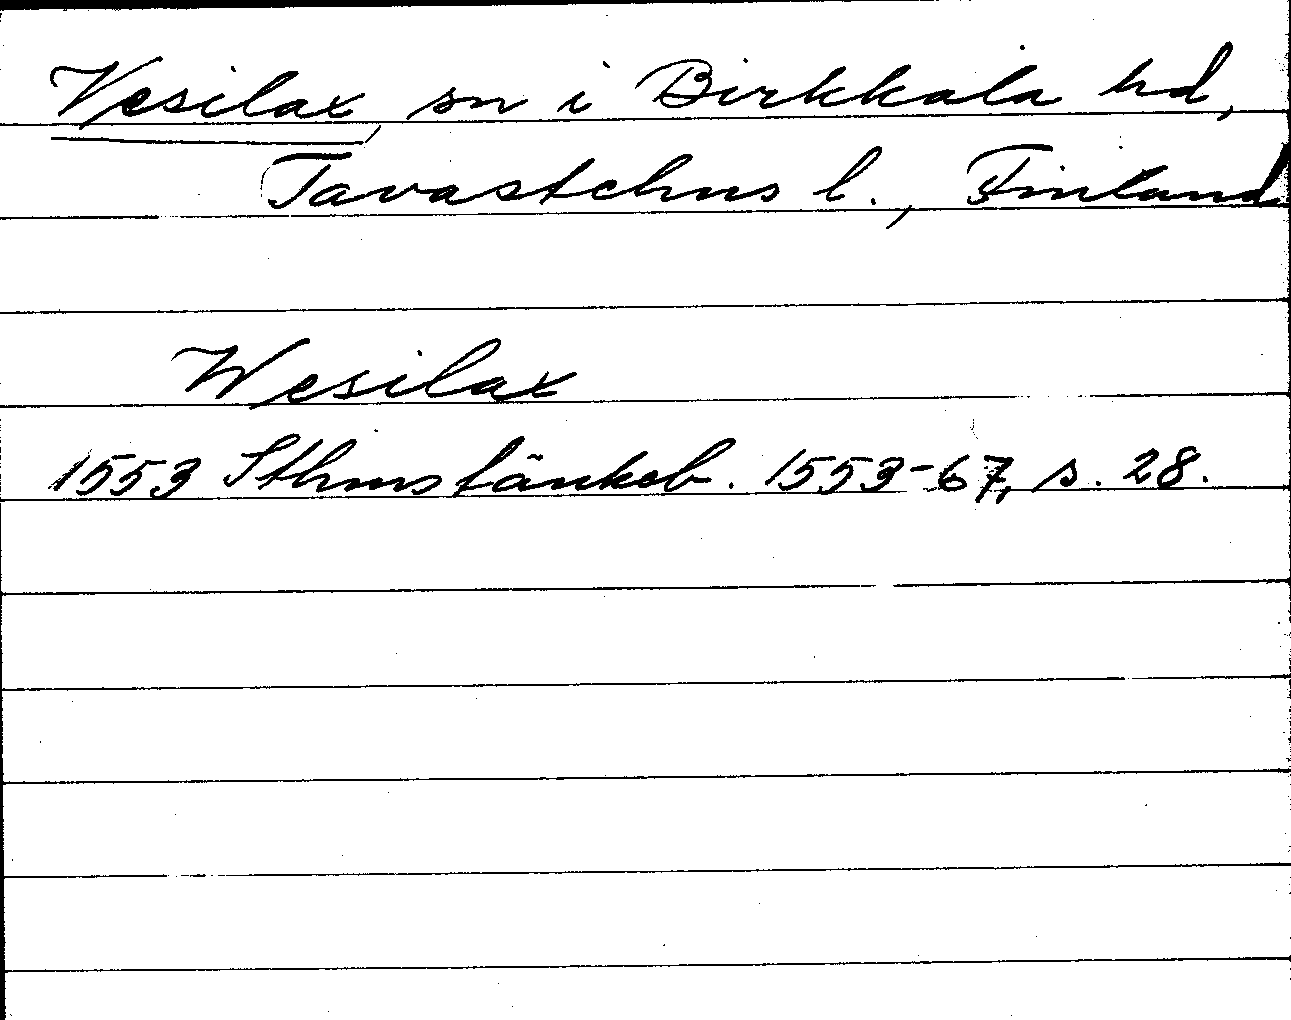 Vesilax, sn i Birkkala hd,
Tavastehus l., Finland
Wesilax
1553 Sthms tänkeb. 1553-67, s. 28.